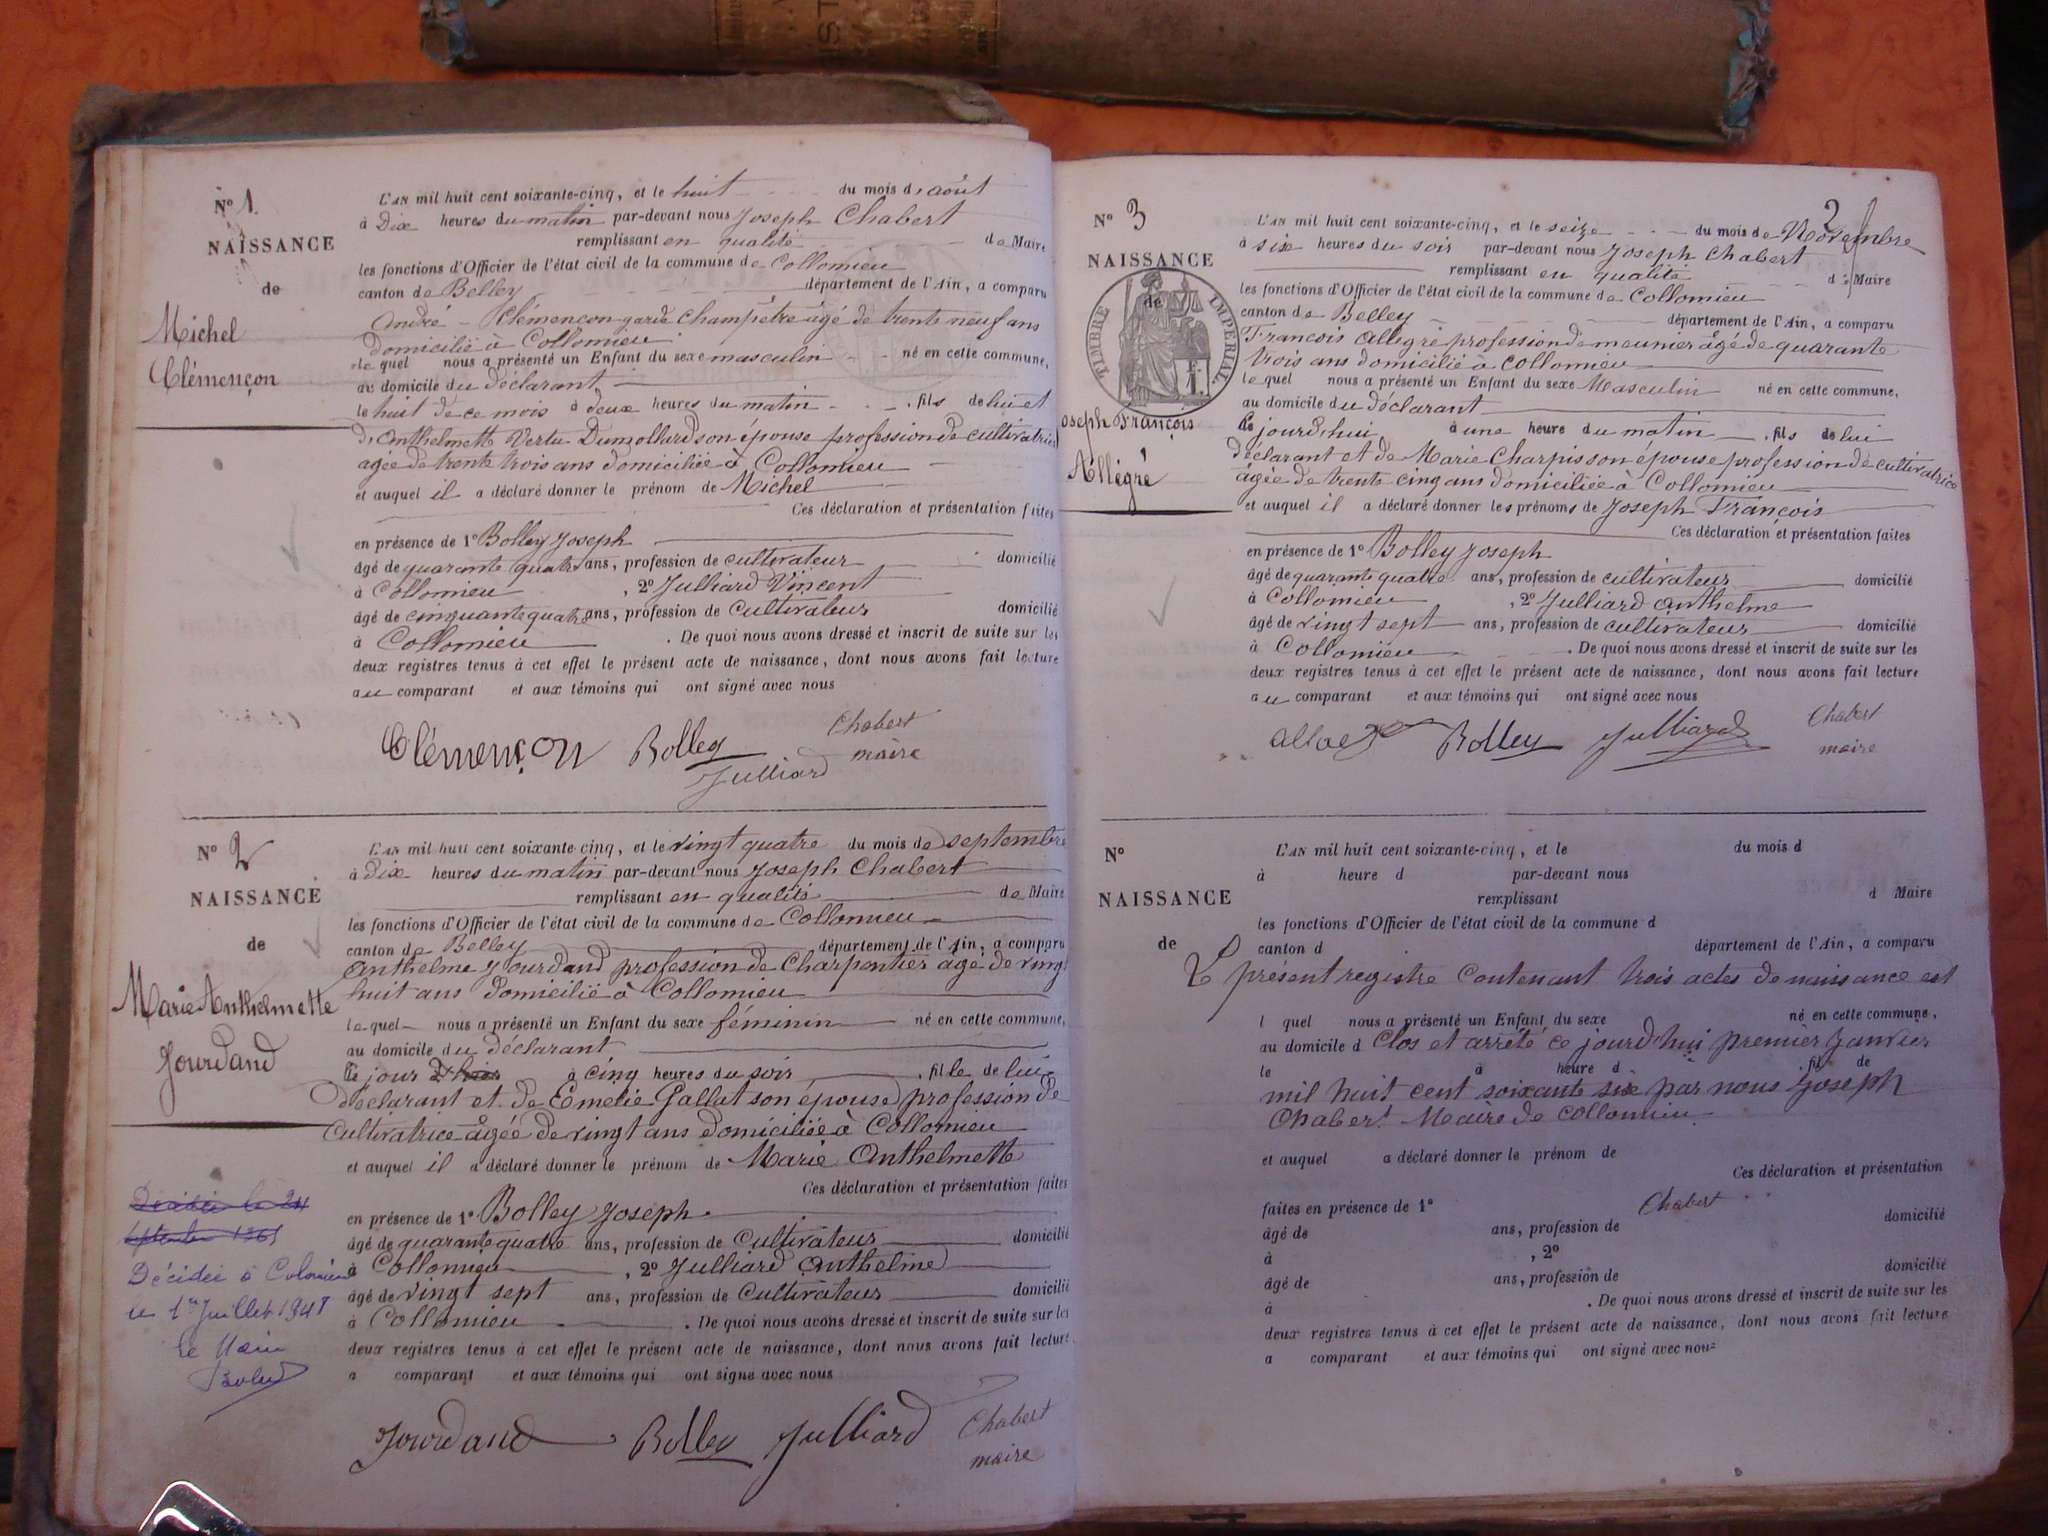 N° 1
NAISSANCE
de
Michel
Clémençon
L'AN mil huit cent soixante-cinq, et le huit du mois d'août
à Dix heures du matin par-devant nous Joseph Chabert
remplissant en qualité de Maire
les fonctions d'Officier de l'état civil de la commune de Collomieu
canton de Belley département de l'Ain, a comparu
André Clémençon garde champêtre âgé de trente neuf ans
domicilié à Collomieu
le quel nous a présenté un Enfant du sexe masculin né en cette commune,
au domicile du déclarant
le huit de ce mois à deux heures du matin, fils de lui et
d'Anthelmette Vertu Dumollard son épouse profession de cultivatrice
agée de trente trois ans domiciliée à Collomieu
et auquel il a déclaré donner le prénom de Michel
Ces déclaration et présentation faites
en présence de 1° Bolley Joseph
âgé de quarante quatre ans, profession de cultivateur domicilié
à Collomieu, 2° Julliard Vincent
âgé de cinquante quatre ans, profession de cultivateur domicilié
à Collomieu. De quoi nous avons dressé et inscrit de suite sur les
deux registres tenus à cet effet le présent acte de naissance, dont nous avons fait lecture
au comparant et aux témoins qui ont signé avec nous
Clémençon Bolley Chabert
Julliard maire
N° 2
NAISSANCE
de
Marie Anthelmette
Jourdand
L'AN mil huit cent soixante-cinq, et le vingt quatre du mois de septembre
à Dix heures du matin par-devant nous Joseph Chabert
remplissant en qualité de Maire
les fonctions d'Officier de l'état civil de la commune de Collomieu
canton de Belley département de l'Ain, a comparu
Anthelme Jourdand profession de Charpentier âgé de vingt
huit ans domicilié à Collomieu
le quel nous a présenté un Enfant du sexe féminin né en cette commune,
au domicile du déclarant
le jour d'hier à cinq heures du soir, fille de lui
déclarant et de Emelie Gallut son épouse profession de
cultivatrice âgée de vingt ans domiciliée à Collomieu
et auquel il a déclaré donner le prénom de Marie Anthelmette
Ces déclaration et présentation faites
en présence de 1° Bolley Joseph
âgé de quarante quatre ans, profession de cultivateur domicilié
à Collomieu, 2° Julliard Anthelme
âgé de vingt sept ans, profession de cultivateur domicilié
à Collomieu. De quoi nous avons dressé et inscrit de suite sur les
deux registres tenus à cet effet le présent acte de naissance, dont nous avons fait lecture
a comparant et aux témoins qui ont signé avec nous
Décédée le 24
septembre 1965
Décédée à Colomieu
le 1er Juillet 1948
le Maire
Jourdand Bolley Julliard Chabert
maire
2
N° 3
NAISSANCE
de
TIMBRE IMPERIAL
F. 1.
oseph François
Allégré
L'AN mil huit cent soixante-cinq, et le seize du mois de Novembre
à six heures du soir par-devant nous Joseph Chabert
remplissant en qualité de Maire
les fonctions d'Officier de l'état civil de la commune de Collomieu
canton de Belley département de l'Ain, a comparu
François Allégré profession de meunier âgé de quarante
trois ans domicilié à Collomieu
le quel nous a présenté un Enfant du sexe Masculin né en cette commune,
au domicile du déclarant
ce jourd'hui à une heure du matin, fils de lui
déclarant et de Marie Charpis son épouse profession de cultivatrice
âgée de trente cinq ans domiciliée à Collomieu
et auquel il a déclaré donner les prénoms de Joseph François
Ces déclaration et présentation faites
en présence de 1° Bolley Joseph
âgé de quarante quatre ans, profession de cultivateur domicilié
à Collomieu, 2° Julliard Anthelme
âgé de vingt sept ans, profession de cultivateur domicilié
à Collomieu. De quoi nous avons dressé et inscrit de suite sur les
deux registres tenus à cet effet le présent acte de naissance, dont nous avons fait lecture
au comparant et aux témoins qui ont signé avec nous
Bolley Julliard Chabert
maire
N°
NAISSANCE
de
L'AN mil huit cent soixante-cinq, et le du mois d
à heure d par-devant nous
remplissant d Maire
les fonctions d'Officier de l'état civil de la commune d
canton d département de l'Ain, a comparu
Le présent registre contenant trois actes de naissance est
l quel nous a présenté un Enfant du sexe né en cette commune,
au domicile d clos et arrêté ce jourd'hui premier Janvier
le à heure d, fil de
mil huit cent soixante six par nous Joseph
Chabert Maire de Collomieu
et auquel a déclaré donner le prénom de
Ces déclaration et présentation
faites en présence de 1° Chabert
âgé de ans, profession de domicilié
à, 2°
âgé de ans, profession de domicilié
à. De quoi nous avons dressé et inscrit de suite sur les
deux registres tenus à cet effet le présent acte de naissance, dont nous avons fait lecture
a comparant et aux témoins qui ont signé avec nous